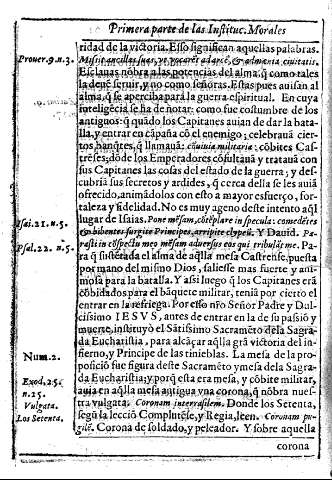 Primera parte de las Instituc. Morales
ridad de la victoria. Esso significan aquellas palabras.
Prouer. 9. n. 3. Missit ancillas suas, vt vocarẽt ad arcẽ, & ad mœnia ciuitatis.
Esclauas nõbra a las potencias del alma: q̃ como tales
la deuẽ seruir, y no como señoras. Estas pues auisan al
alma, q̃ se aperciba para la guerra espiritual. En cuya
inteligẽcia se ha de ñotar, como fue costumbre de los
antiguos: q̃ quãdo los Capitanes auian de dar la bata-
lla, y entrar en cãpaña cõ el enemigo; celebrauã cier-
tos bãquetes, q̃ llamauã: cõuiuia militaria: cõbites Cas-
trẽses; dõde los Emperadores cõsultauã y trataua con
sus Capitanes las cosas del estado de la guerra; y des-
cubria sus secretos y ardides, q̃ cerca della se les auiã
ofrecido, animãdolos con esto a mayor esfuerço, for-
taleza y fidelidad. No es muy ageno deste intento aq̃l
Isai. 21. n. 5. lugar de Isaias. Pone mẽsam, cõtẽplare in specula: comedẽtes
& bibentes surgite Principes, arripite clypeũ. Y Dauid. Pa-
Psal. 22. n. 5. rasti in cõspectu meo mẽsam aduersus eos qui tribulãt me. Pa-
ra q̃ sustẽtada el alma de aq̃lla mesa Castrense, puesta
por mano del mismo Dios, saliesse mas fuerte y ani-
mosa para la batalla. Y assi luego q̃ los Capitanes erã
cõbidados para el bãquete militar, teniã por cierto el
entrar en la refriega. Por esso nño Señor Padre y Dul-
cissimo IESVS, antes de entrar en la de su passiõ y
muerte, instituyò el Sãtissimo Sacramẽto de la Sagra-
da Eucharistia, para alcãçar aq̃lla grã victoria del in-
Num. 2. fierno, y Principe de las tinieblas. La mesa de la pro-
posiciõ fue figura deste Sacramẽto y mesa dela Sagra-
Exod. 25. da Eucharistia; y porq̃ esta era mesa, y cõbite militar,
n. 25. auia en aq̃lla mesa antigua vna corona, q̃ nõbra nues-
Vulgata. tra vulgata. Coronam interrasilem. Donde los Setenta,
Los Setenta. segũ la lecciõ Complutẽse, y Regia, leen. Coronam pu-
gilẽ. Corona de soldado, y peleador. Y sobre aquella
corona